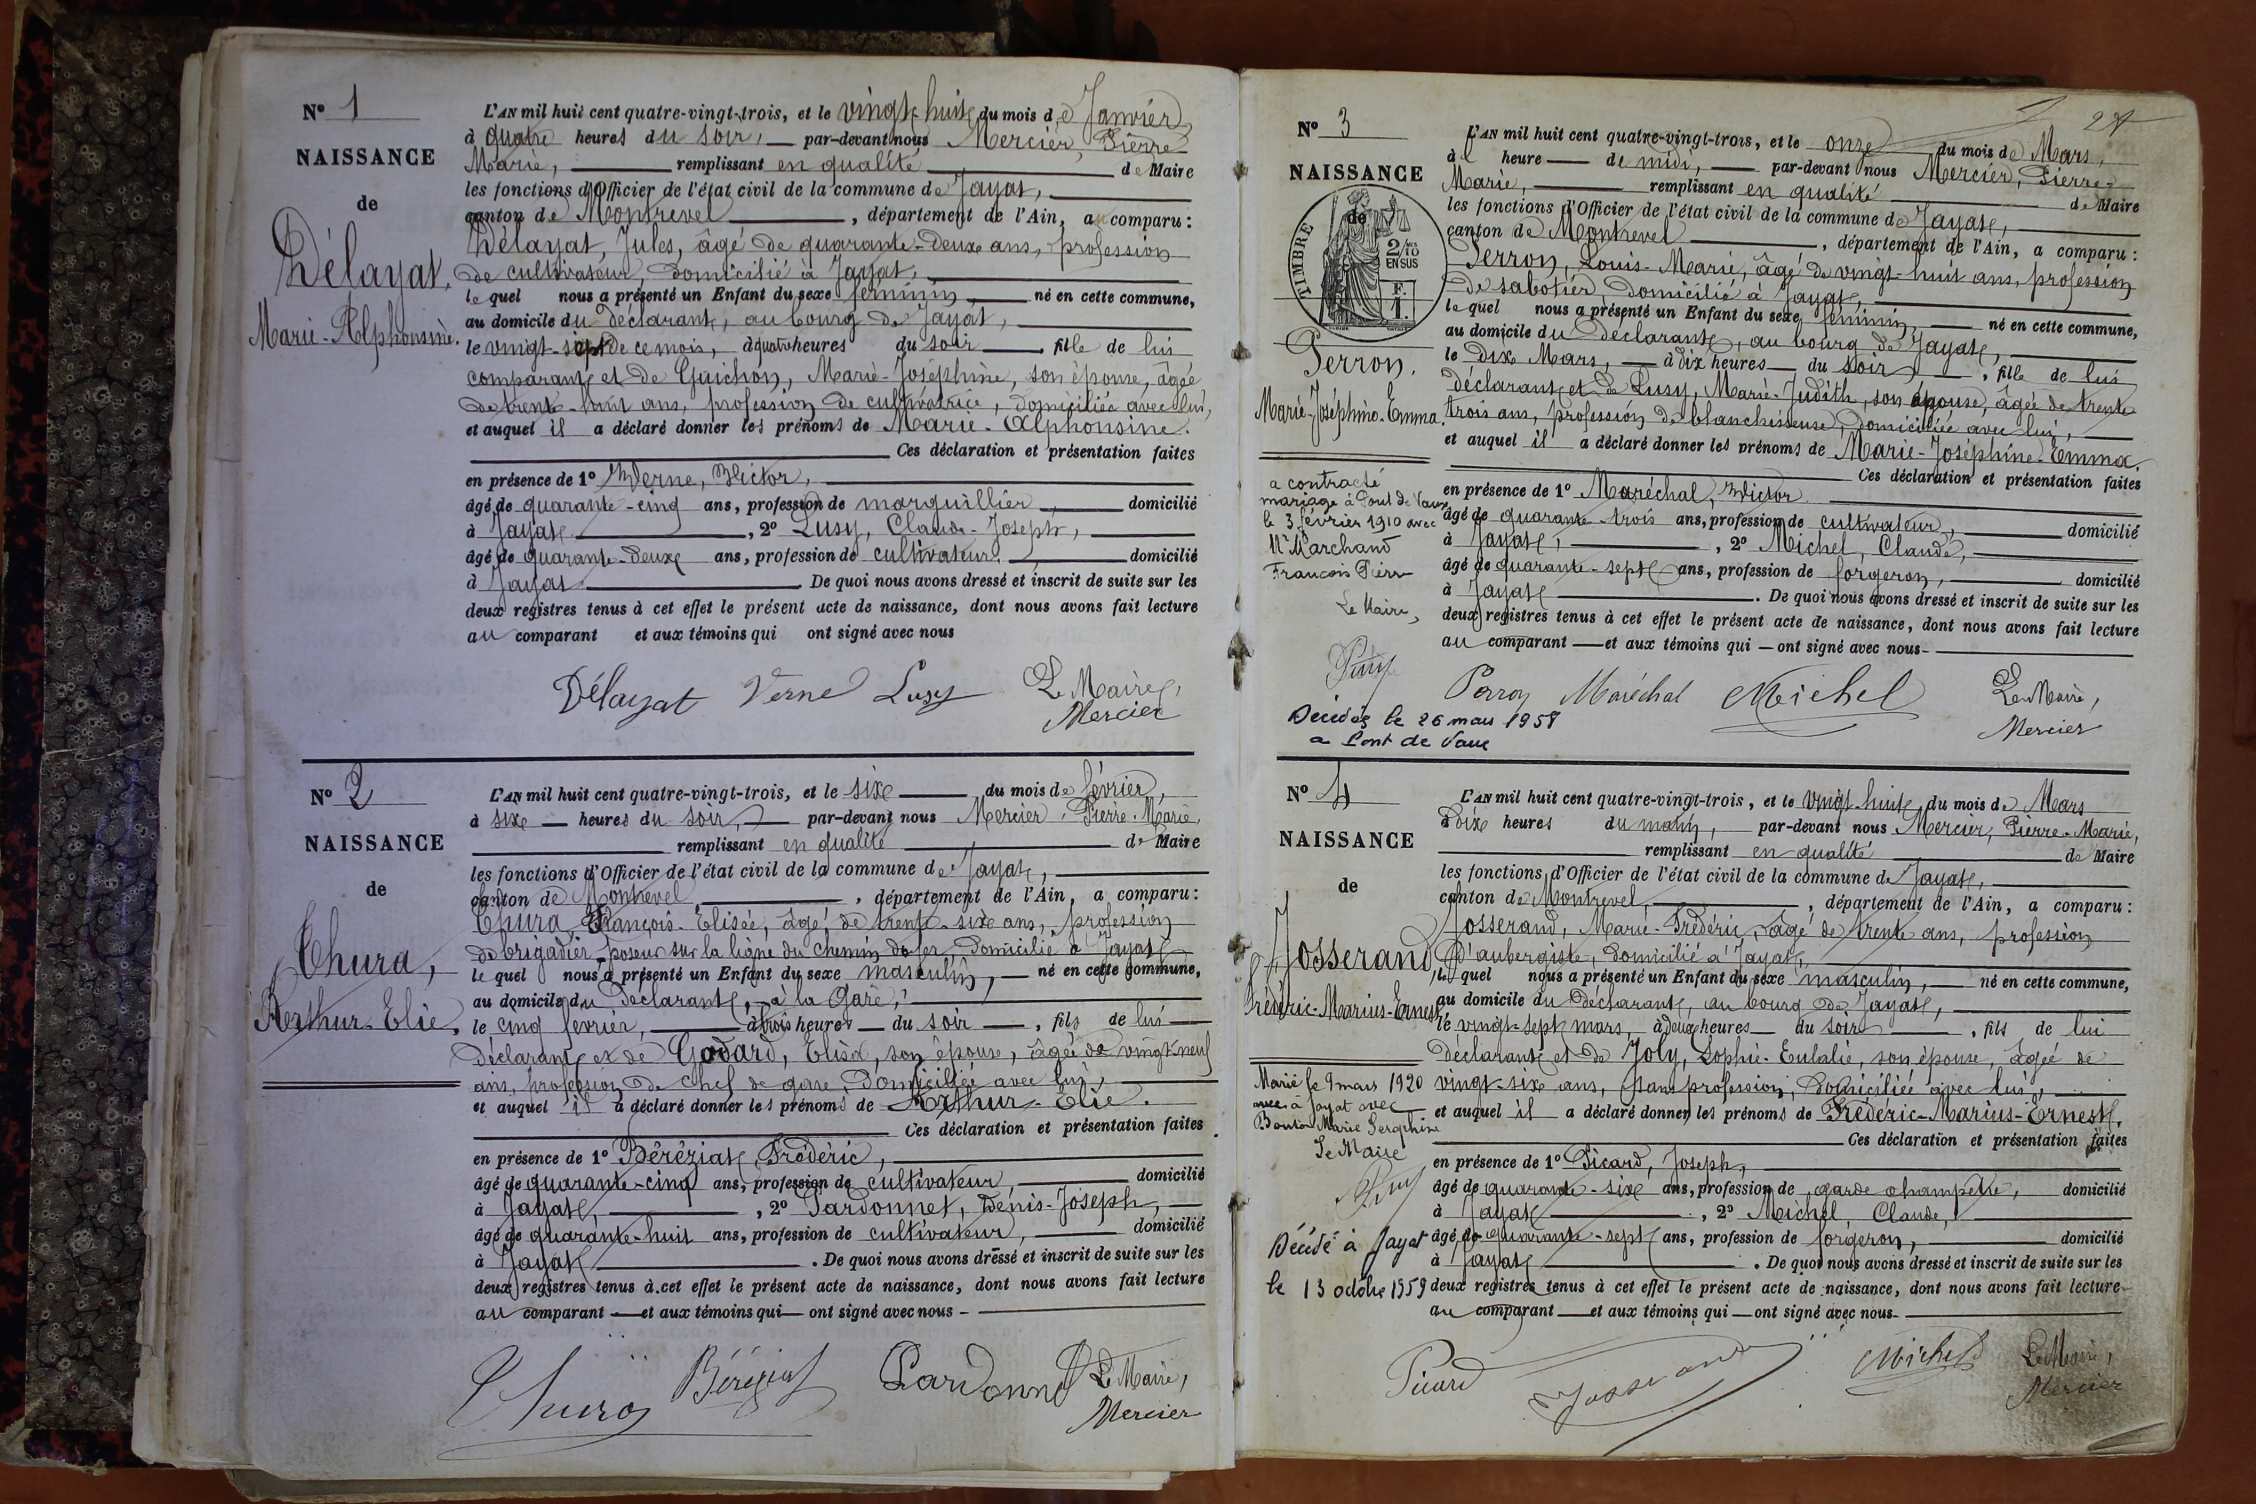 N° 1
NAISSANCE
de
Délayat,
Marie-Alphonsine.
L'AN mil huit cent quatre-vingt-trois, et le vingt-huit du mois de Janvier
à quatre heures du soir, par-devant nous Mercier, Pierre
Marie, remplissant en qualité de Maire
les fonctions d'Officier de l'état civil de la commune de Jayat,
canton de Montrevel, département de l'Ain, a comparu :
Délayat, Jules, âgé de quarante-deux ans, profession
de cultivateur, domicilié à Jayat,
lequel nous a présenté un Enfant du sexe féminin, né en cette commune,
au domicile du déclarant, au bourg de Jayat,
le vingt-sept de ce mois, à quatre heures du soir, fille de lui
comparant et de Guichon, Marie-Joséphine, son épouse, âgée
de trente-huit ans, profession de cultivatrice, domiciliée avec lui,
et auquel il a déclaré donner les prénoms de Marie-Alphonsine.
Ces déclaration et présentation faites
en présence de 1° Verne, Victor,
âgé de quarante-cinq ans, profession de marguillier, domicilié
à Jayat, 2° Lusy, Claude-Joseph,
âgé de quarante-deux ans, profession de cultivateur, domicilié
à Jayat De quoi nous avons dressé et inscrit de suite sur les
deux registres tenus à cet effet le présent acte de naissance, dont nous avons fait lecture
au comparant et aux témoins qui ont signé avec nous
Délayat Verne Lusy Le Maire,
Mercier
N° 2
NAISSANCE
de
Thura,
Arthur-Elie.
L'AN mil huit cent quatre-vingt-trois, et le six du mois de février,
à six heures du soir, par-devant nous Mercier, Pierre-Marie,
remplissant en qualité de Maire
les fonctions d'Officier de l'état civil de la commune de Jayat,
canton de Montrevel, département de l'Ain, a comparu :
Thura, François-Elisée, âgé de trente-six ans, profession
de brigadier-poseur sur la ligne du chemin de fer domicilié à Jayat
lequel nous a présenté un Enfant du sexe masculin, né en cette commune,
au domicile du déclarant, à la Gare,
le cinq février, à trois heures du soir, fils de lui
déclarant et de Godard, Elisa, son épouse, âgée de vingt-neuf
ans, profession de chef de gare, domiciliée avec lui,
et auquel il a déclaré donner les prénoms de Arthur-Elie.
Ces déclaration et présentation faites
en présence de 1° Béréziat, Frédéric,
âgé de quarante-cinq ans, profession de cultivateur, domicilié
à Jayat, 2° Pardonnet, Denis-Joseph,
âgé de quarante-huit ans, profession de cultivateur, domicilié
à Jayat. De quoi nous avons dressé et inscrit de suite sur les
deux registres tenus à cet effet le présent acte de naissance, dont nous avons fait lecture
au comparant et aux témoins qui ont signé avec nous
Thura Béréziat Pardonnet Le Maire,
Mercier
N° 3
NAISSANCE
de
TIMBRE
2/10
EN SUS
Perron,
Marie-Joséphine-Emma.
a contracté
mariage à Pont de Vaux
le 3 février 1910 avec
Mr Marchand
François Pierre
Le Maire,
Décédée le 26 mars 1958
a Pont de Vaux
L'AN mil huit cent quatre-vingt-trois, et le onze du mois de Mars,
à heure de midi, par-devant nous Mercier, Pierre-
Marie, remplissant en qualité de Maire
les fonctions d'Officier de l'état civil de la commune de Jayat,
canton de Montrevel, département de l'Ain, a comparu :
Perron, Louis-Marie, âgé de vingt-huit ans, profession
de sabotier, domicilié à Jayat,
lequel nous a présenté un Enfant du sexe féminin, né en cette commune,
au domicile du déclarant, au bourg de Jayat,
le dix Mars, à dix heures du soir, fille de lui
déclarant et de Lusy, Marie-Judith, son épouse, âgée de trente
trois ans, profession de blanchisseuse, domiciliée avec lui,
et auquel il a déclaré donner les prénoms de Marie-Joséphine-Emma.
Ces déclaration et présentation faites
en présence de 1° Maréchal, Victor
âgé de quarante-trois ans, profession de cultivateur, domicilié
à Jayat, 2° Michel, Claude,
âgé de quarante-sept ans, profession de forgeron, domicilié
à Jayat. De quoi nous avons dressé et inscrit de suite sur les
deux registres tenus à cet effet le présent acte de naissance, dont nous avons fait lecture
au comparant et aux témoins qui ont signé avec nous
Perron Maréchal Michel Le Maire,
Mercier
N° 4
NAISSANCE
de
Josserand
Frédéric-Marius-Ernest,
Marié le 9 mars 1920
à Jayat avec
Bouton Marie Seraphine
Le Maire
Décédé à Jayat
le 13 octobre 1959
L'AN mil huit cent quatre-vingt-trois, et le vingt-huit du mois de Mars
à dix heures du matin, par-devant nous Mercier, Pierre-Marie,
remplissant en qualité de Maire
les fonctions d'Officier de l'état civil de la commune de Jayat,
canton de Montrevel, département de l'Ain, a comparu :
Josserand, Marie-Frédéric, âgé de trente ans, profession
d'aubergiste, domicilié à Jayat,
lequel nous a présenté un Enfant du sexe masculin, né en cette commune,
au domicile du déclarant, au bourg de Jayat,
le vingt-sept mars, à deux heures du soir, fils de lui
déclarant et de Joly, Sophie-Eulalie, son épouse, âgée de
vingt-six ans, sans profession, domiciliée avec lui,
et auquel il a déclaré donner les prénoms de Frédéric-Marius-Ernest.
Ces déclaration et présentation faites
en présence de 1° Picard, Joseph,
âgé de quarante-six ans, profession de garde champêtre, domicilié
à Jayat, 2° Michel, Claude,
âgé de quarante-sept ans, profession de forgeron, domicilié
à Jayat. De quoi nous avons dressé et inscrit de suite sur les
deux registres tenus à cet effet le présent acte de naissance, dont nous avons fait lecture
au comparant et aux témoins qui ont signé avec nous
Picard Josserand Michel Le Maire,
Mercier